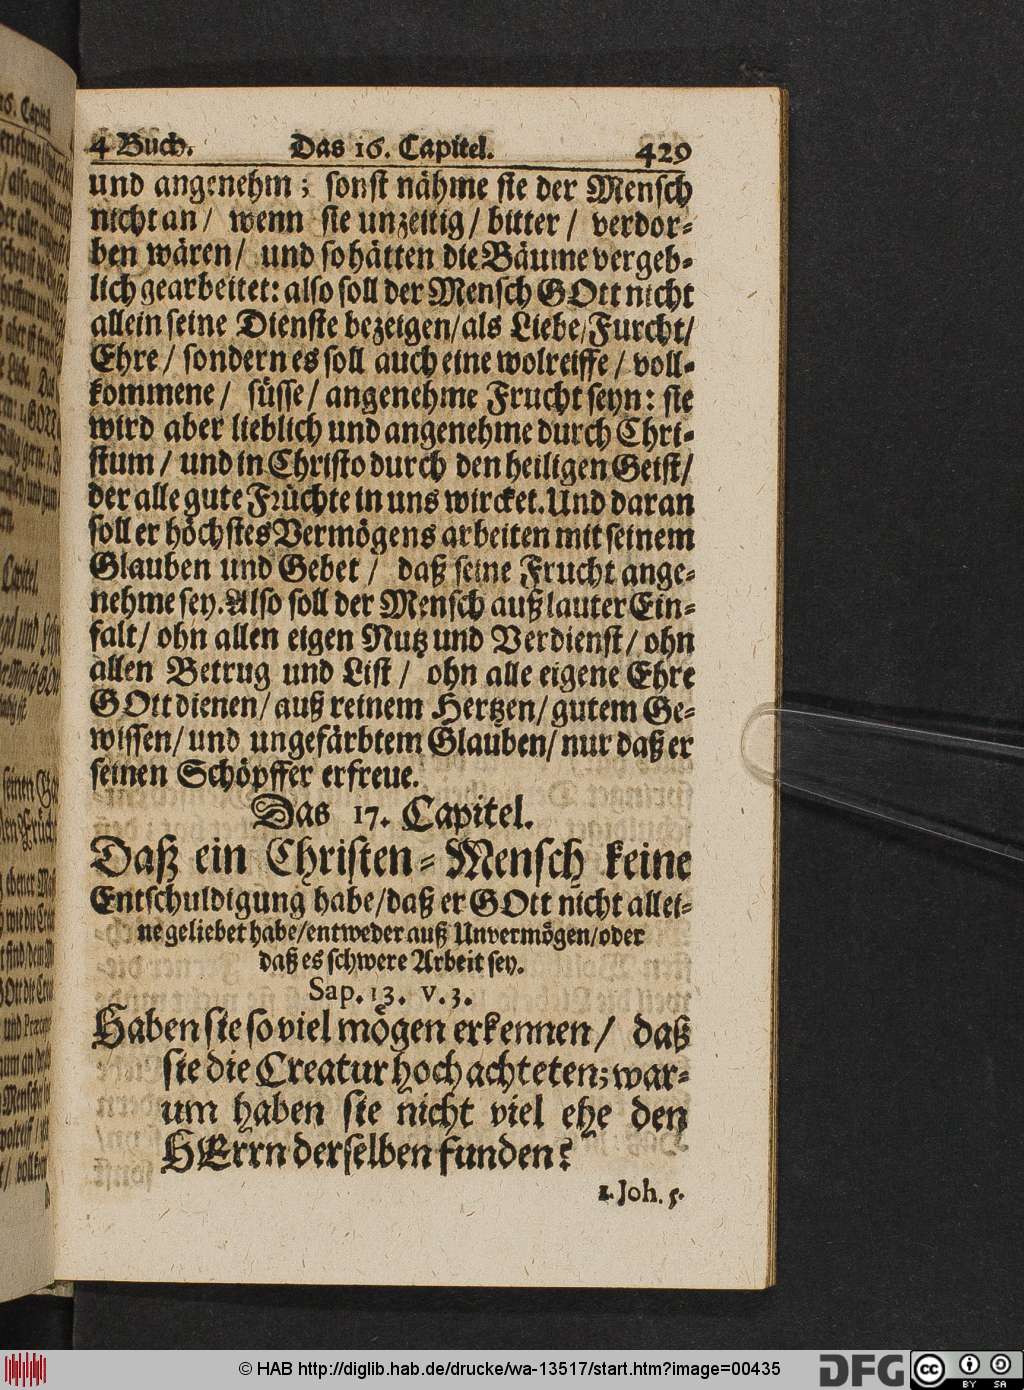 4 Buch. Das 16. Capitel. 429
und angenehm; sonst nähme sie der Mensch
nicht an/ wenn sie unzeitig/ bitter/ verdor-
ben wären/ und so hätten die Bäume vergeb-
lich gearbeitet: also soll der Mensch GOtt nicht
allein seine Dienste bezeigen/als Liebe/Furcht/
Ehre/ sondern es soll auch eine wolreiffe/ voll-
kommene/ süsse/ angenehme Frucht seyn: sie
wird aber lieblich und angenehme durch Chri-
stum/ und in Christo durch den heiligen Geist/
der alle gute Früchte in uns wircket. Und daran
soll er höchstes Vermögens arbeiten mit seinem
Glauben und Gebet/ daß seine Frucht ange-
nehme sey. Also soll der Mensch auß lauter Ein-
falt/ ohn allen eigen Nutz und Verdienst/ ohn
allen Betrug und List/ ohn alle eigene Ehre
GOtt dienen/ auß reinem Hertzen/ gutem Ge-
wissen/ und ungefärbtem Glauben/ nur daß er
seinen Schöpffer erfreue.
Das 17. Capitel.
Daß ein Christen-Mensch keine
Entschuldigung habe/daß er GOtt nicht allei-
ne geliebet habe/entweder auß Unvermögen/oder
daß es schwere Arbeit sey.
Sap. 13. v. 3.
Haben sie so viel mögen erkennen/ daß
sie die Creatur hoch achteten; war-
um haben sie nicht viel ehe den
HErrn derselben funden?
1. Joh. 5.
© HAB http://diglib.hab.de/drucke/wa-13517/start.htm?image=00435
DFG
cc BY SA